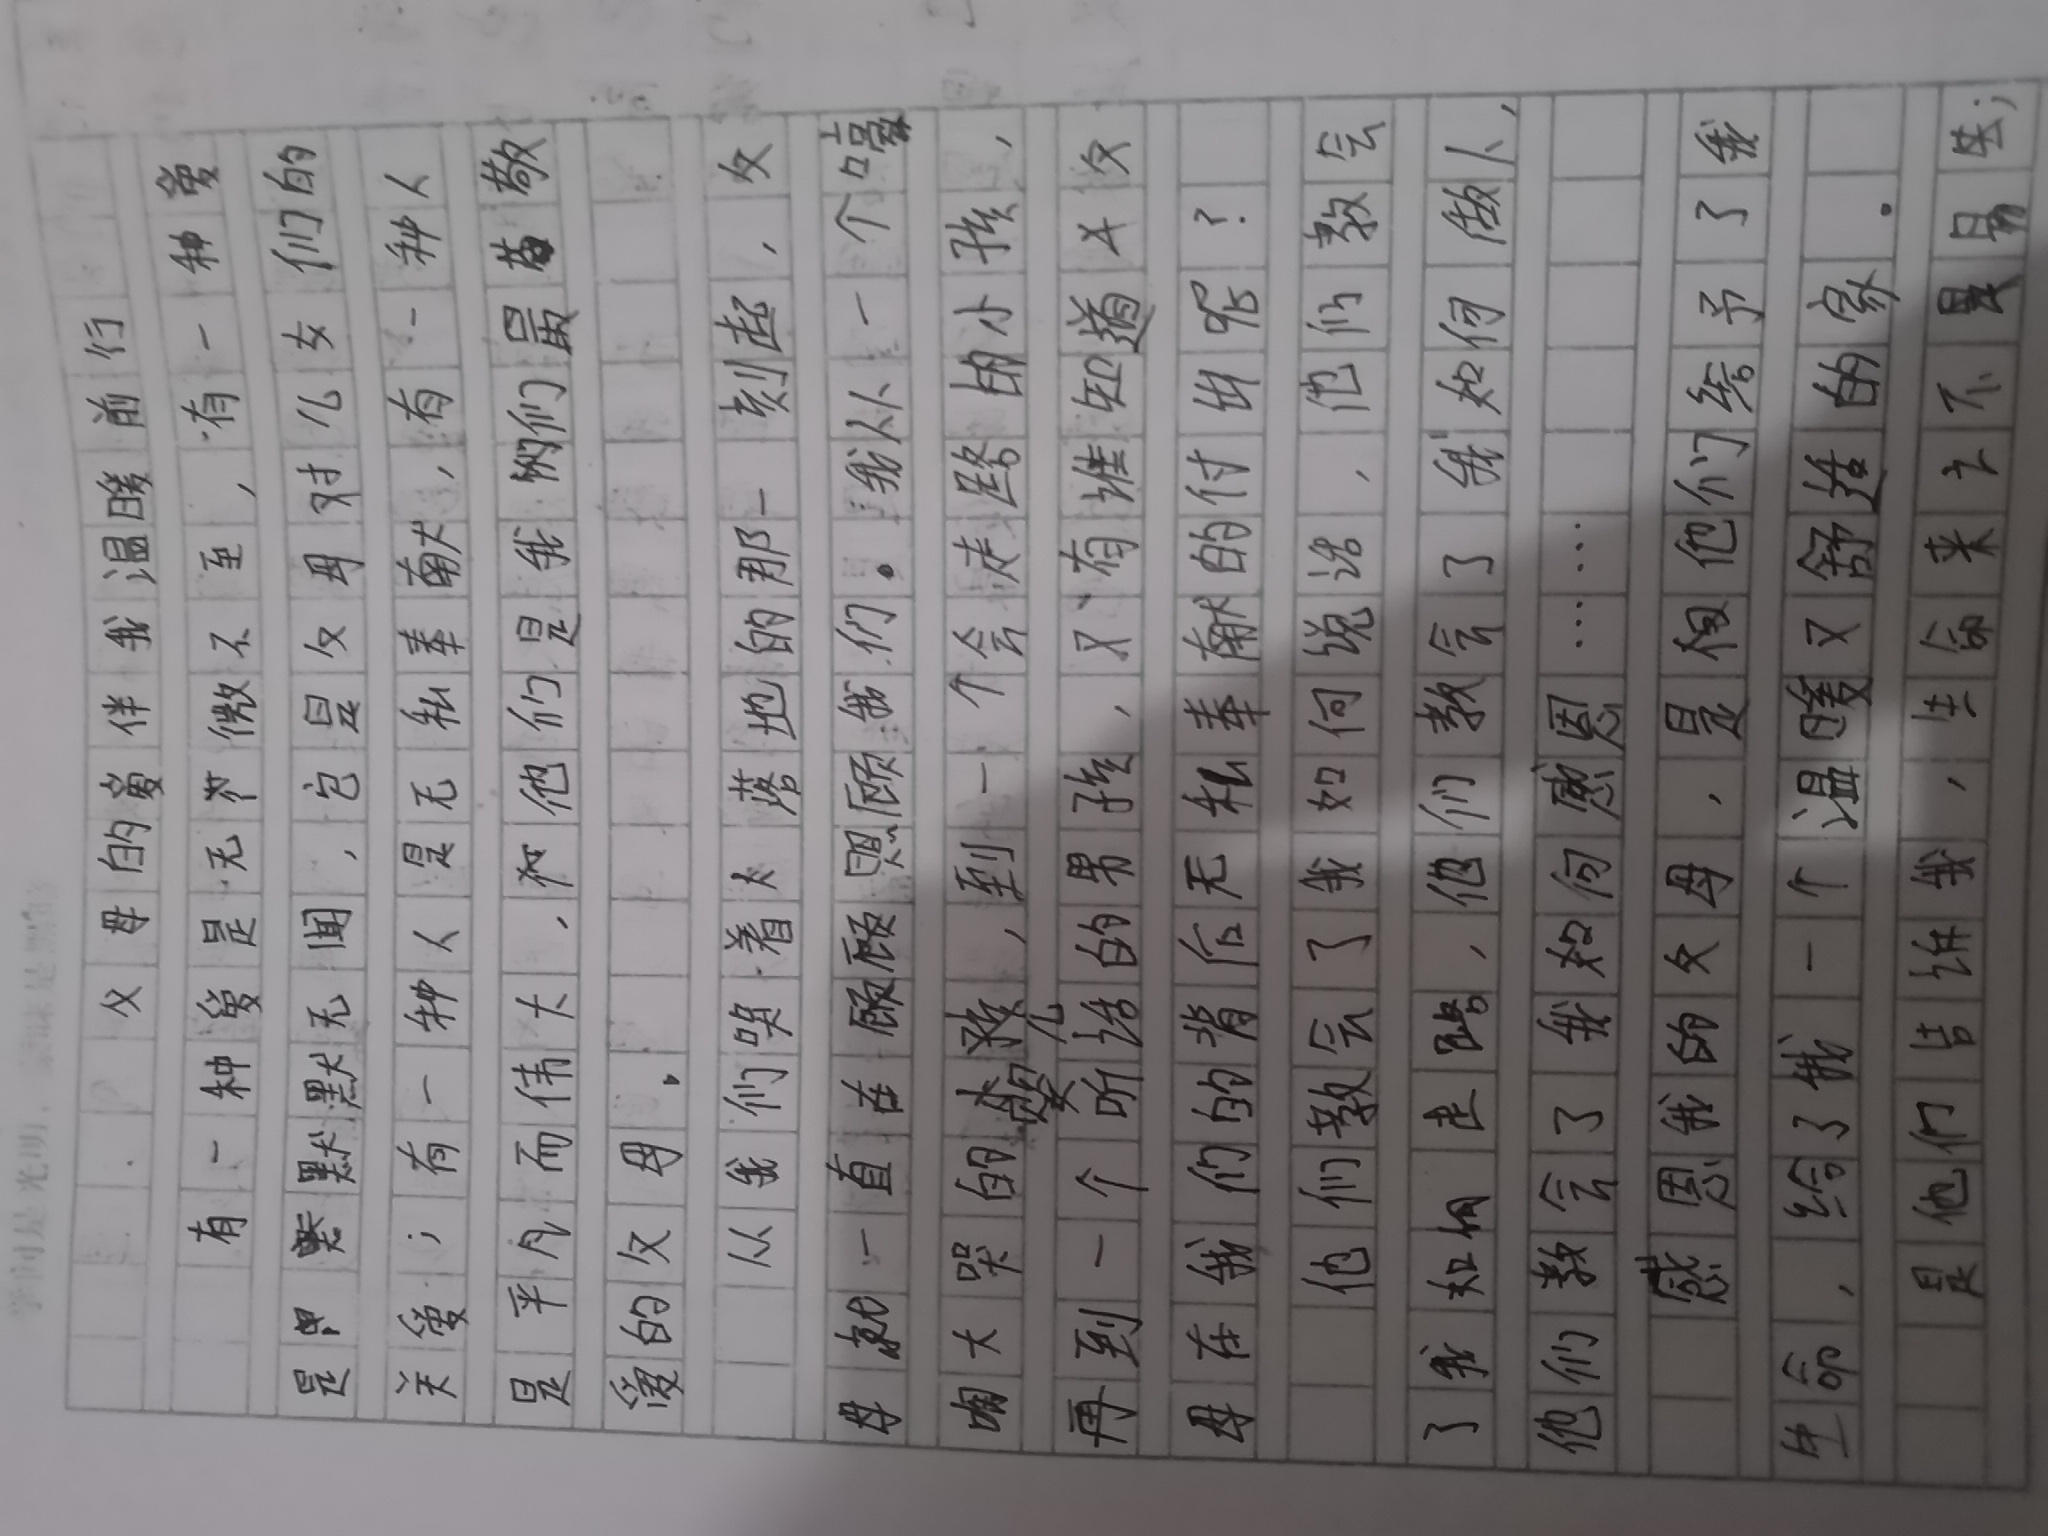 父母的爱伴我温暖前行
有一种爱是无节微不至，有一种爱
是默默无闻，它是父母对儿女们的
关爱；有一种人是无私奉献，有一种人
是平凡而伟大，他们是我们最敬
爱的父母。
从我们哭着落地的那一刻起，父
母就一直在照顾我们。我从一个嚎
啕大哭的婴儿，到一个会走路的小孩，
再到一个所谓的男孩，又有谁知道父
母在我们的背后无私奉献的付出呢？
他们教会了我如何说话，他们教会
了我如何走路，他们教会了我如何做人，
他们教会了我如何感恩……
感恩我的父母，是他们给予了我
生命，给了我一个温暖又舒适的家。
是他们告诉我，生命来之不易；